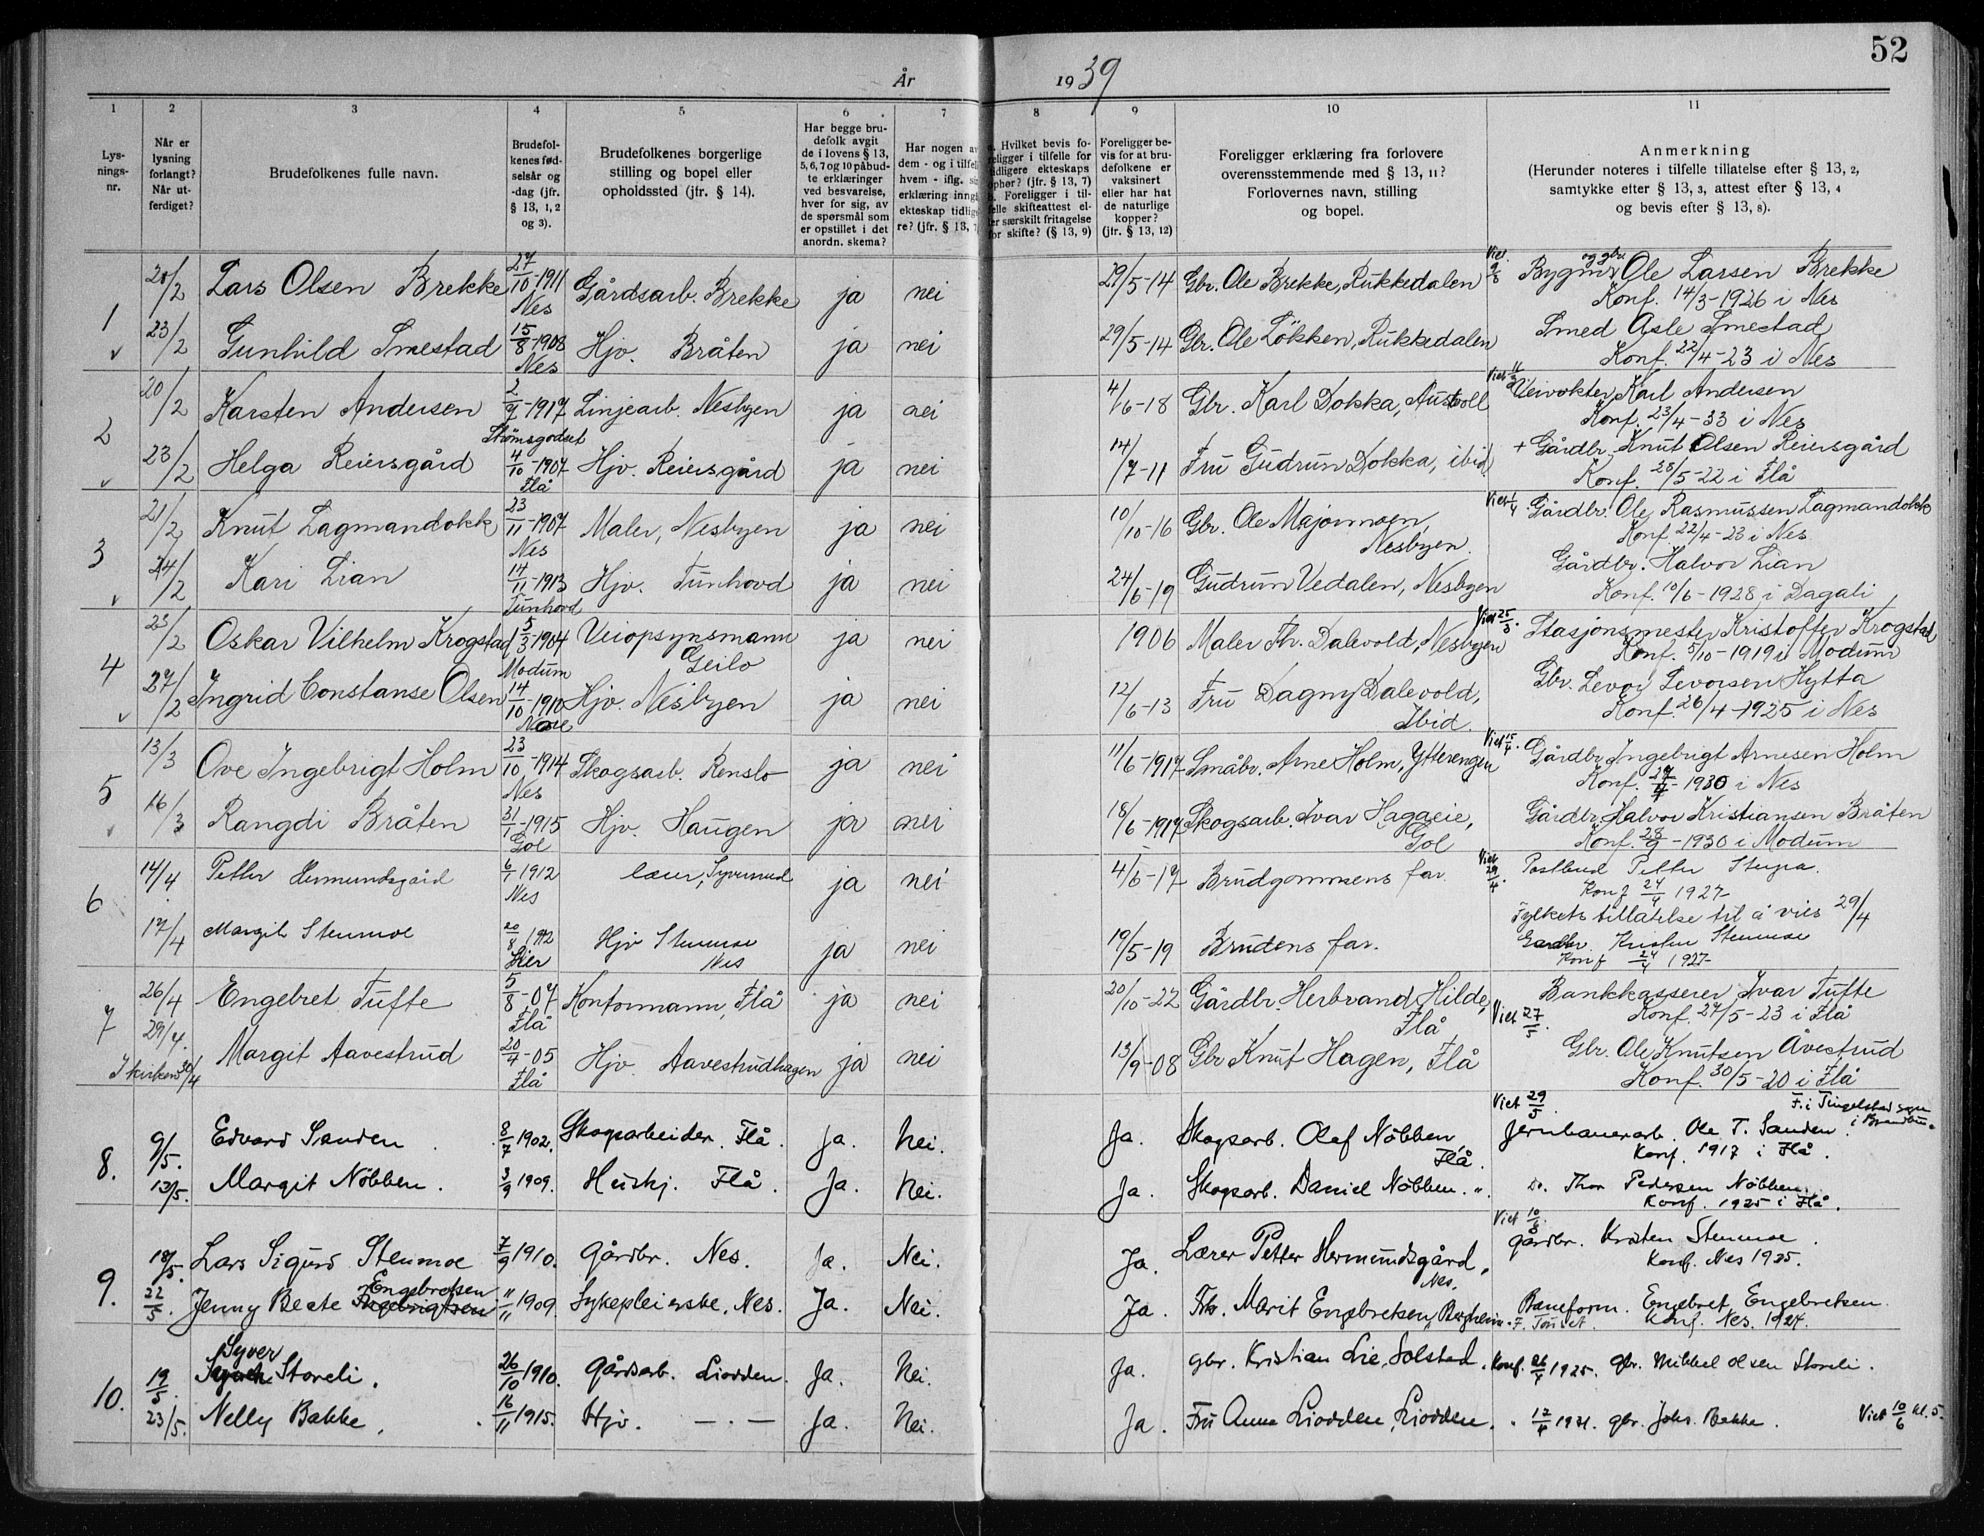 52
År 1939
1 2 3 4 5 6 7 8 9 10 11
Lys-
nings-
nr.
Når er
lysning
forlangt?
Når ut-
ferdiget?
Brudefolkenes fulle navn.
Brudefol-
kenes fød-
selsår og
-dag (jfr.
§ 13, 1, 2
og 3).
Brudefolkenes borgerlige
stilling og bopel eller
opholdssted (jfr. § 14).
Har begge bru-
defolk avgit
de i lovens § 13,
5, 6, 7 og 10 påbud-
te erklæringer
ved besvarelse,
hver for sig, av
de spørsmål som
er opstillet i det
anordn. skema?
Har nogen av
dem - og i tilfell
hvem - iflg. si
erklæring inngå
ekteskap tidlige
re? (jfr. § 13, 7
. Hvilket bevis fo-
religger i tilfelle for
idligere ekteskaps
ophør? (jfr. § 13, 7)
b. Foreligger i til-
felle skifteattest el-
ler særskilt fritagelse
for skifte? (§ 13, 9)
Foreligger be-
vis for at bru-
defolkene er
vaksinert
eller har hat
de naturlige
kopper?
(jfr. § 13, 12)
Foreligger erklæring fra forlovere
overensstemmende med § 13, 11?
Forlovernes navn, stilling
og bopel.
Anmerkning
(Herunder noteres i tilfelle tillatelse efter § 13, 2,
samtykke efter § 13, 3, attest efter § 13, 4
og bevis efter § 13, 8).
1 20/2 Lars Olsen Brekke 27/10-1911 Nes Gårdsarb. Brekke ja nei 29/5-14 Gbr. Ole Brekke, Rukkedalen Viet 9/3 Bygm. og gbr. Ole Larsen Brekke
Konf. 14/3-1926 i Nes
23/2 Gunhild Smestad 15/8-1908 Nes Hjv. Bråten ja nei 29/5-14 Gbr. Ole Løkken, Rukkedalen Smed Asle Smestad
Konf. 22/4-23 i Nes
2 20/2 Karsten Andersen 2/7-1917 Strømsgodset Linjearb. Nesbyen ja nei 4/6-18 Gbr. Karl Dokka, Austvoll Viet Veivokter Karl Andersen
Konf. 23/4-33 i Nes
23/2 Helga Reiersgård 4/10-1907 Flå Hjv. Reiersgård ja nei 14/7-11 Fru Gudrun Dokka, ibid + Gårdbr. Knut Olsen Reiersgård
Konf. 28/5-22 i Flå
3 21/2 Knut Lagmandokk 23/11-1907 Nes Maler, Nesbyen ja nei 10/10-16 Gbr. Ole Majormoen,
Nesbyen. Viet 1/4 Gårdbr. Ole Rasmussen Lagmandokk
Konf. 22/4-23 i Nes
24/2 Kari Lian 14/11-1913 Tunhovd Hjv. Tunhovd ja nei 24/6-19 Gudrun Vedalen, Nesbyen Gårdbr. Halvor Lian
Konf. 10/6-1928 i Dagali
4 23/2 Oskar Vilhelm Krogstad 5/3-1904 Modum Veiopsynsmann
Geilo ja nei 1906 Maler Th. Dalevold, Nesbyen Viet 25/3. Stasjonsmester Kristoffer Krogstad
Konf. 5/10-1919 i Modum
27/2 Ingrid Constanse Olsen 14/10-1910 Hjv. Nesbyen ja nei 12/6-13 Fru Dagny Dalevold,
Ibid. Gbr. Levor Levorsen Hytta
Konf. 26/4-1925 i Nes
5 13/3 Ove Ingebrigt Holm 23/10-1914 Nes Skogsarb. Renslo ja nei 11/6-1917 Småbr. Arne Holm, Ytterengen Viet 15/4. Gårdbr. Ingebrigt Arnesen Holm
Konf. 1930 i Nes
16/3 Rangdi Bråten 31/1-1915 Gol Hjv. Haugen ja nei 18/6-1917 Skogsarb. Ivar Haggeie,
Gol Gårdbr. Halvor Kristiansen Bråten
Konf. 28/9-1930 i Modum
6 14/4 Petter Hermundsgård 6/1 1912 Nes lærer, ja nei 4/6-17 Brudgommens far. Viet 29/4. Postbud Petter
Konf 24/4 1927
Fylkets tillatelse til å vies 29/4
17/4 Margit Stenmoe 20/8 1912 Lier Hjv Stenmoe
Nes ja nei 19/5-19 Brudens far. Gardbr. Kristen Stenmoe
Konf 24/4 1927
7 26/4 Engebret Tufte 5/8-07 Flå Kontormann, Flå ja nei 20/10-22 Gårdbr. Herbrand Hilde,
Flå Viet 27/5. Bankkasserer Ivar Tufte
Konf. 27/5-23 i Flå
29/4. Margit Aavestrud 20/7-05 Flå Hjv. Aavestrudhagen ja nei 13/9-08 Gbr Knut Hagen, Flå Gbr. Ole Knutsen Åvestrud
Konf. 30/5-20 i Flå
I kirken 30/4
8. 9/5. Edvard Sanden. 8/7 1902. Skogsarbeider. Flå. Ja. Nei. Ja. Skogsarb. Olaf Nöbben,
Flå. Viet 29/5. F. i Tingelstad sogn
i Brandbu.
Jernbanearb. Ole T. Sanden.
Konf. 1917 i Flå.
13/5. Margit Nöbben. 3/9 1909. Hushj. Flå. Ja. Nei. Ja. Skogsarb. Daniel Nöbben. ". Do. Thor Pedersen Nöbben
Konf. 1925 i Flå.
9. 18/5. Lars Sigurd Stenmoe 7/9 1910. Gårdbr. Nes. Ja. Nei. Ja. Lærer Petter Hermundsgård,
Nes. Viet 10/6. Gårdbr. Kristen Stenmoe.
Konf. Nes 1925.
22/5. Jenny Beate Engebretsen 11/11 1909. Sykepleierske, Nes. Ja. Nei. Ja. Frk. Marit Engebretsen, Bergheim. Baneform. Engebret Engebretsen.
Konf. Nes. 1924.
10. 19/5. Syver Storeli. 26/10 1910. Gårdsarb. Liodden. Ja. Nei. Ja. Gbr. Kristian Lie, Solstad. Konf. 26/4 1925. Gbr. Mikkel Olsen Storeli.
23/5. Nelly Bakke. 16/11 1915. Hjv. — . — Ja. Nei. Ja. Fru Anna Liodden, Liodden. " 12/4 1931. Gbr. Johs. Bakke. Viet 10/6 kl. 5.